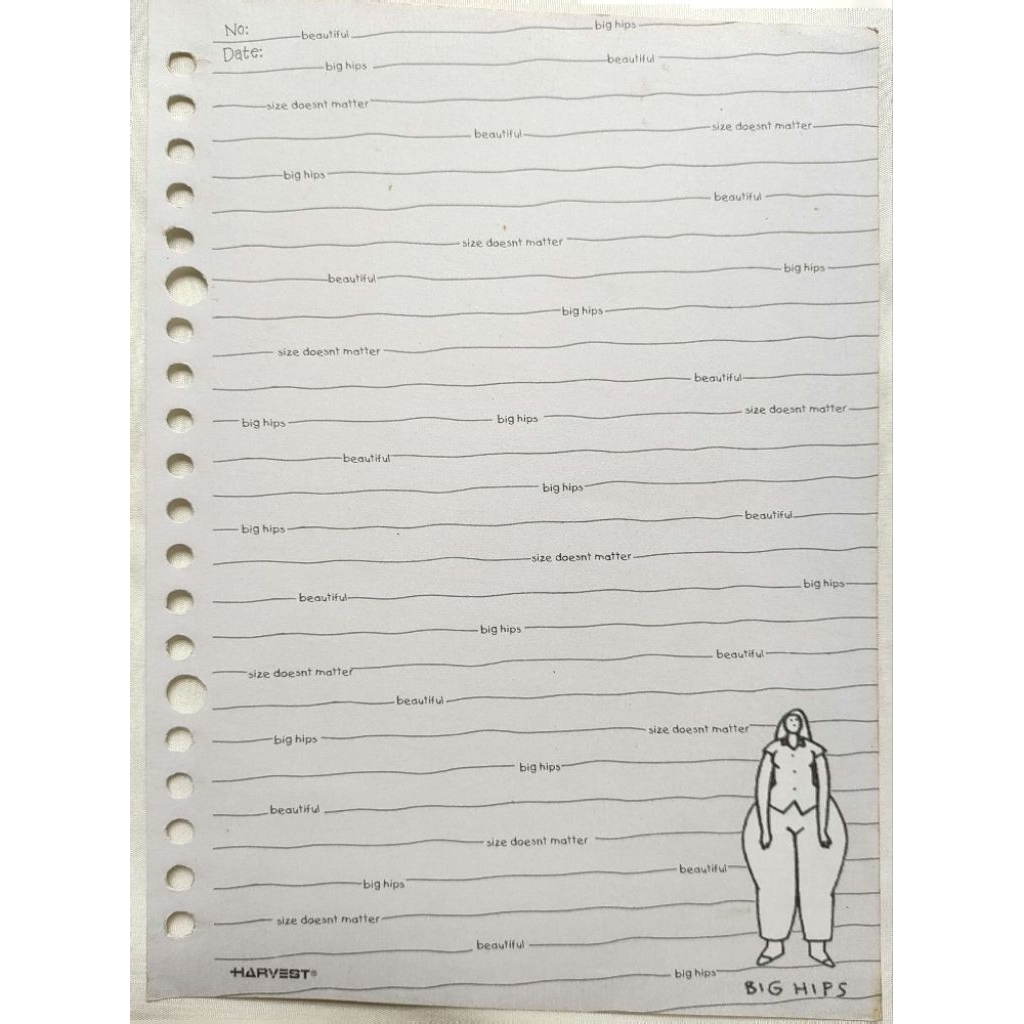 No: beautiful big hips
Date: big hips beautiful
size doesnt matter
beautiful size doesnt matter
big hips
beautiful
size doesnt matter
beautiful big hips
big hips
size doesnt matter
beautiful
big hips big hips size doesnt matter
beautiful
big hips
big hips beautiful
size doesnt matter
beautiful big hips
big hips
size doesnt matter beautiful
beautiful
big hips size doesnt matter
big hips
beautiful
size doesnt matter
big hips beautiful
size doesnt matter
beautiful
HARVEST® big hips
BIG HIPS